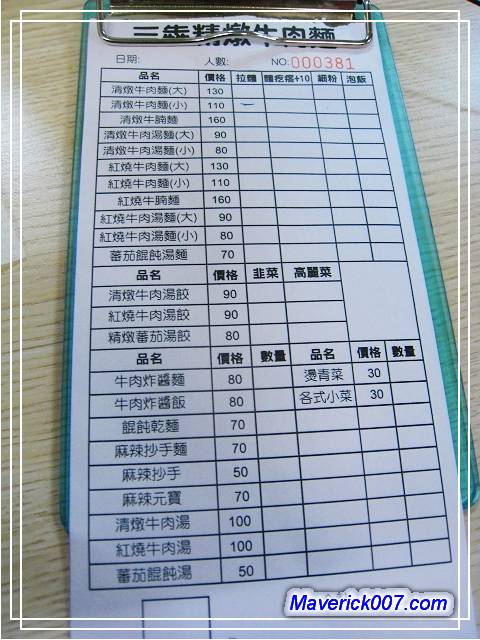 三犇精燉牛肉麵
日期: 人數: NO:000381
品名 價格 拉麵 麵疙瘩+10 細粉 泡飯
清燉牛肉麵(大) 130
清燉牛肉麵(小) 110 一
清燉牛腩麵 160
清燉牛肉湯麵(大) 90
清燉牛肉湯麵(小) 80
紅燒牛肉麵(大) 130
紅燒牛肉麵(小) 110
紅燒牛腩麵 160
紅燒牛肉湯麵(大) 90
紅燒牛肉湯麵(小) 80
蕃茄餛飩湯麵 70
品名 價格 韭菜 高麗菜
清燉牛肉湯餃 90
紅燒牛肉湯餃 90
精燉蕃茄湯餃 80
品名 價格 數量 品名 價格 數量
牛肉炸醬麵 80 燙青菜 30
牛肉炸醬飯 80 各式小菜 30
餛飩乾麵 70
麻辣抄手麵 70
麻辣抄手 50
麻辣元寶 70
清燉牛肉湯 100
紅燒牛肉湯 100
蕃茄餛飩湯 50
Maverick007.com